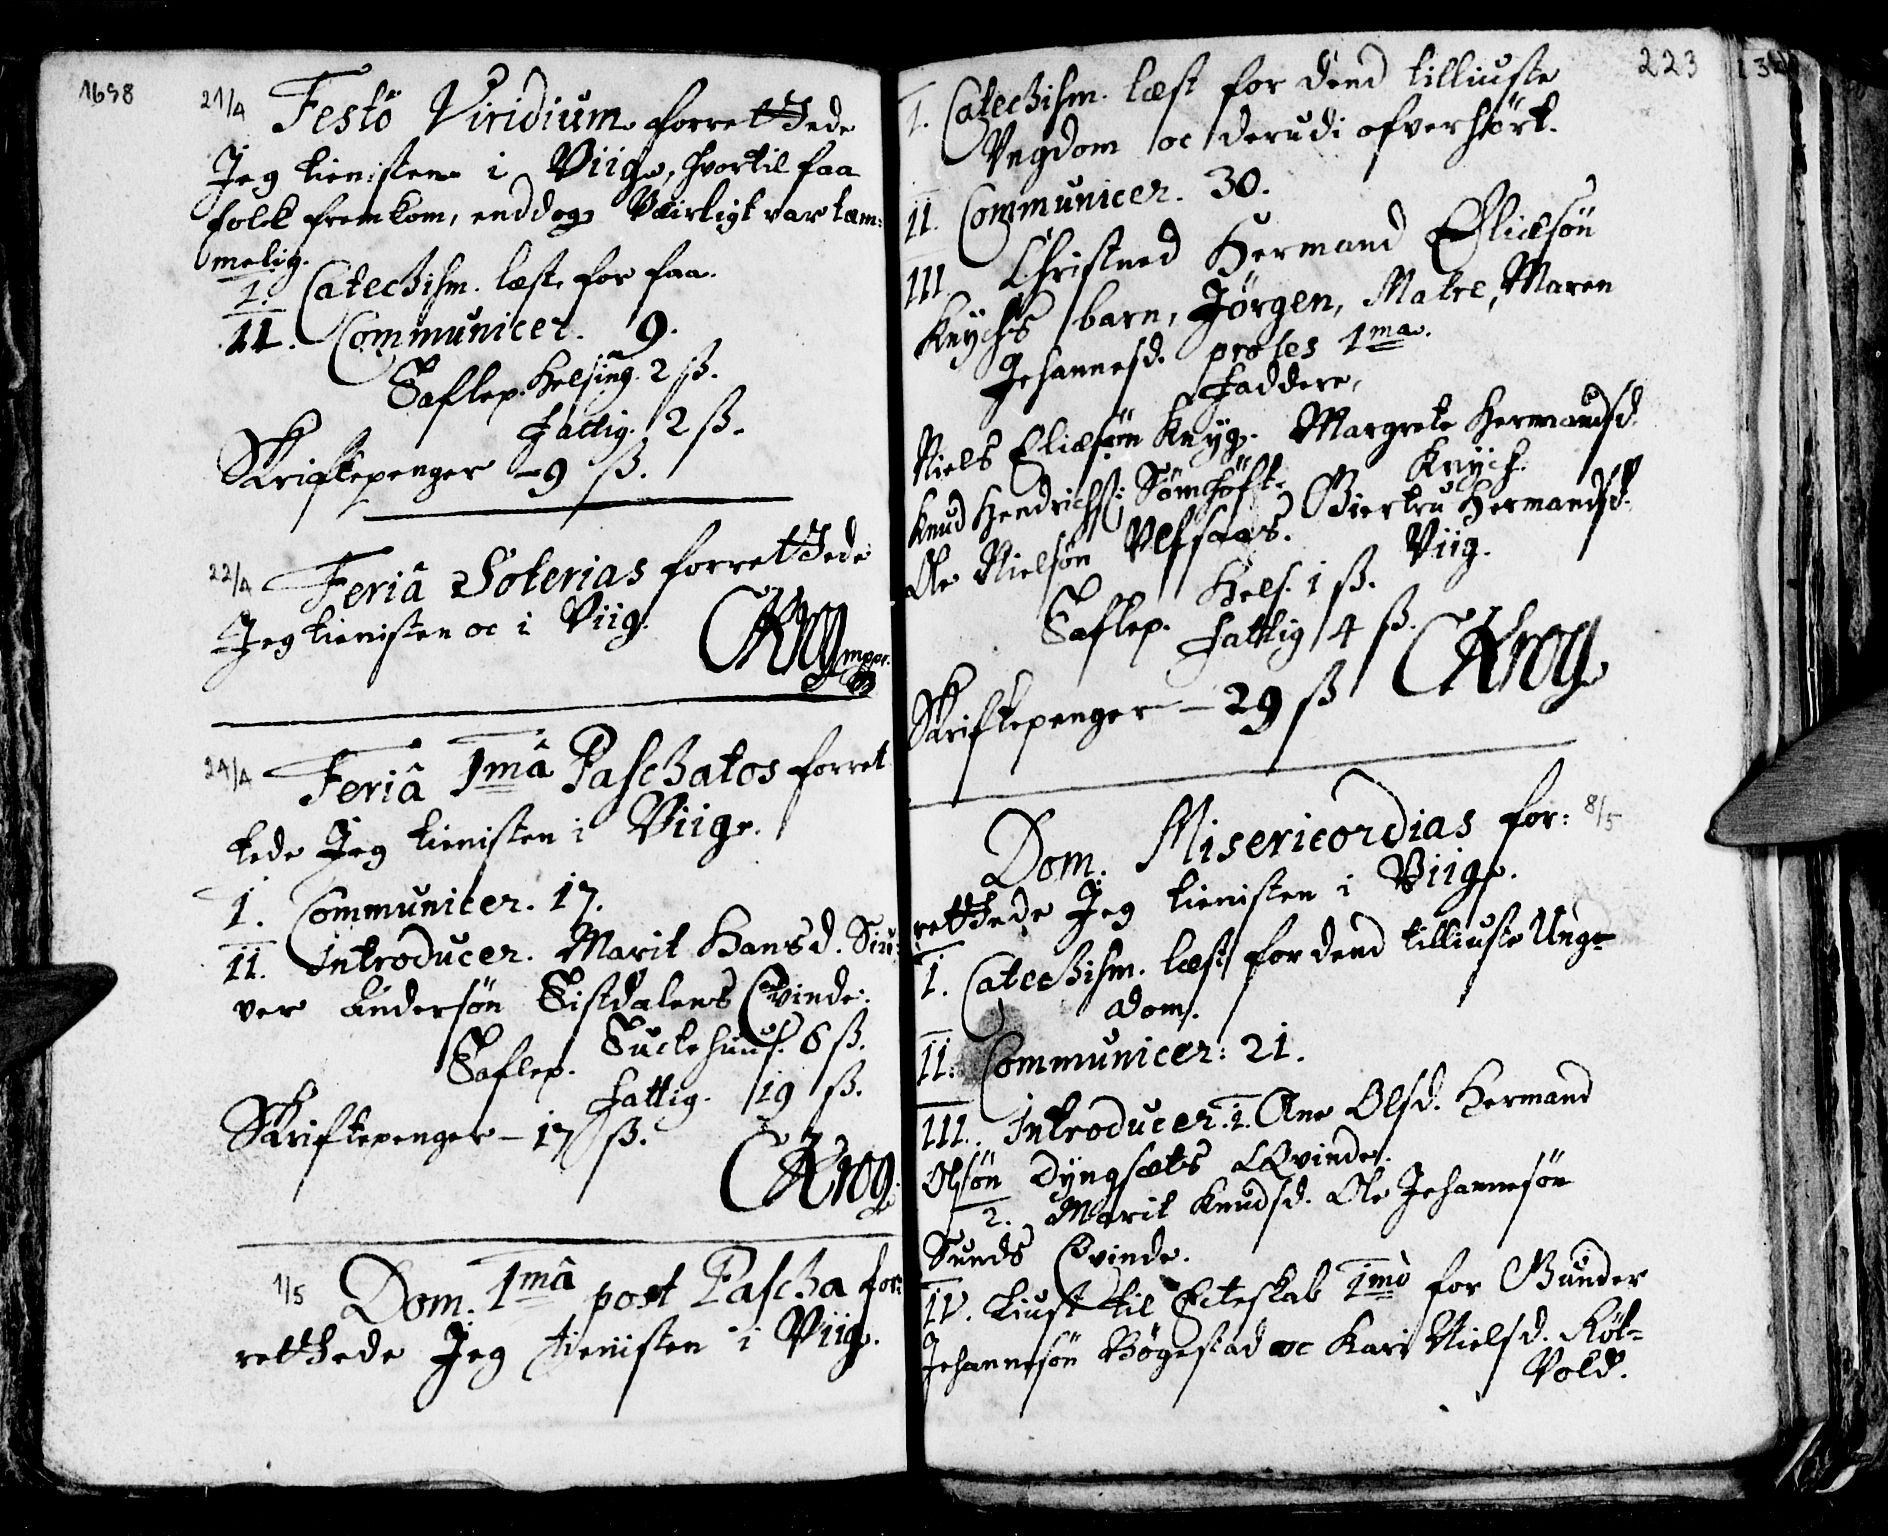 1698
21/4 Festô Viridium forrettede
Jeg tienisten i Viige, hvortil faa
folck fremkom, enddog Væirligt var tæm-
melig.
I. Catechism. læst for faa.
II. Communicer. 9.
Taflep. Helsing. 2 ß.
Fattig. 2 ß.
Skriftepenger – 9 ß.
22/4 Feriâ Soterias forrettede
Jeg tienisten oc i Viig.
CKrog mppr.
24/4 Feriâ 1mâ Paschatos forret
tede Jeg tienisten i Viige.
I. Communicer. 17.
II. Introducer. Marit Hansd. Siu-
ver Andersøn Sistdalens Qvinde.
Tuctehuus. 6 ß.
Taflep.
Fattig. 19 ß.
Skriftepenger – 17 ß.
CKrog.
1/5 Dom. 1mâ post Pascha for-
rettede Jeg tienisten i Viige.
223
I. Catechism. læst for dend tilliuste
Vngdom oc derudi ofverhört.
II. Communicer. 30.
III Christned Hermand Eliæsøn
Knychs barn, Jørgen, Matre, Maren
Johannesd. proles 1ma.
Faddere,
Niels Eliæsøn Knyg. Margrete Hermandsd.
Knych.
Knud Hendrichs: Sømhöft. Giertru Hermandsd.
Ole Nielsøn Vlfsaas. Viig.
Hels. 1 ß.
Taflep.
Fattig 4 ß.
CKrog
Skriftepenger – 29 ß
Dom. Misericordias for: 8/5
rettede Jeg tienisten i Viige.
I. Catechism. læst for dend tilliuste Unge
dom.
II. Communicer: 21.
III. Introducer. 1. Ane Olsd. Hermand
Olsøn Dyngsæts Qvinde.
2. Marit Knudsd. Ole Johannesøn
Sunds Qvinde.
IV. Liust til Ecteskab 1mò for Gunder
Johannesøn Bögestad oc Kari Nielsd. Röt-
Vold.